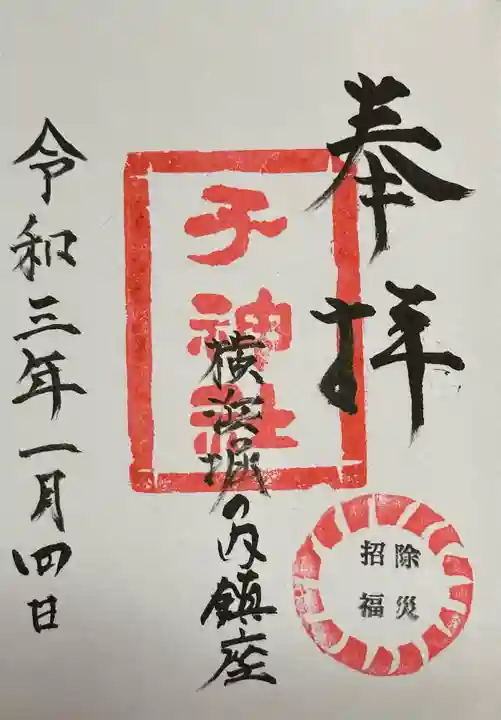 奉拝
子神社
横浜堀の内鎮座
令和三年一月四日
除災
招福